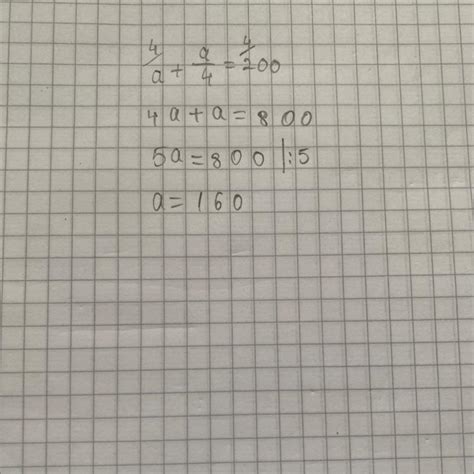 4/a + a/4 = 4/200
4a + a = 800
5a = 800 |:5
a = 160